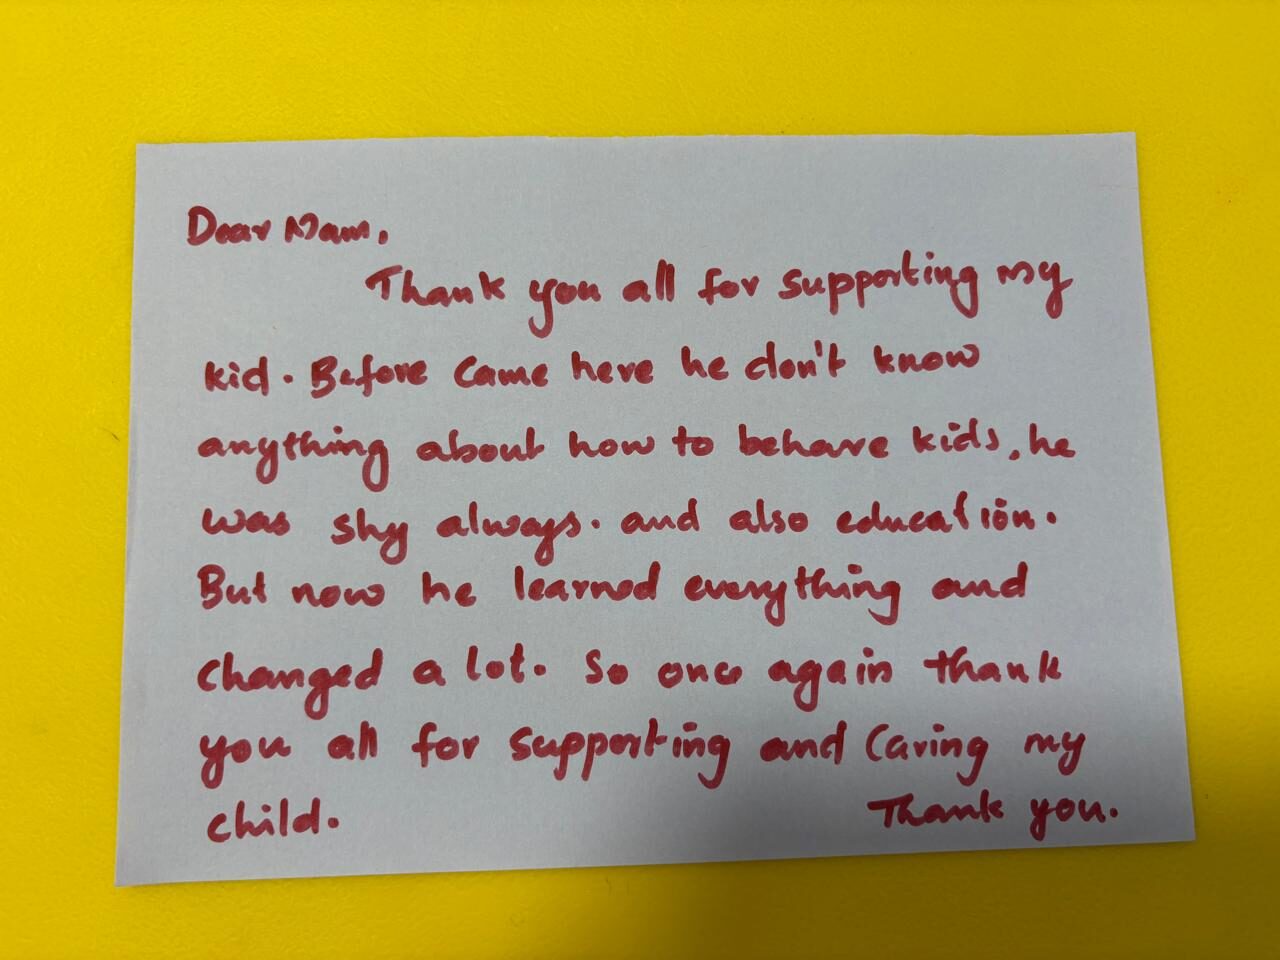 Dear Mam,
Thank you all for supporting my
kid. Before Came here he don't know
anything about how to behave kids, he
was shy always. and also education.
But now he learned everything and
changed a lot. So once again thank
you all for supporting and Caring my
child. Thank you.